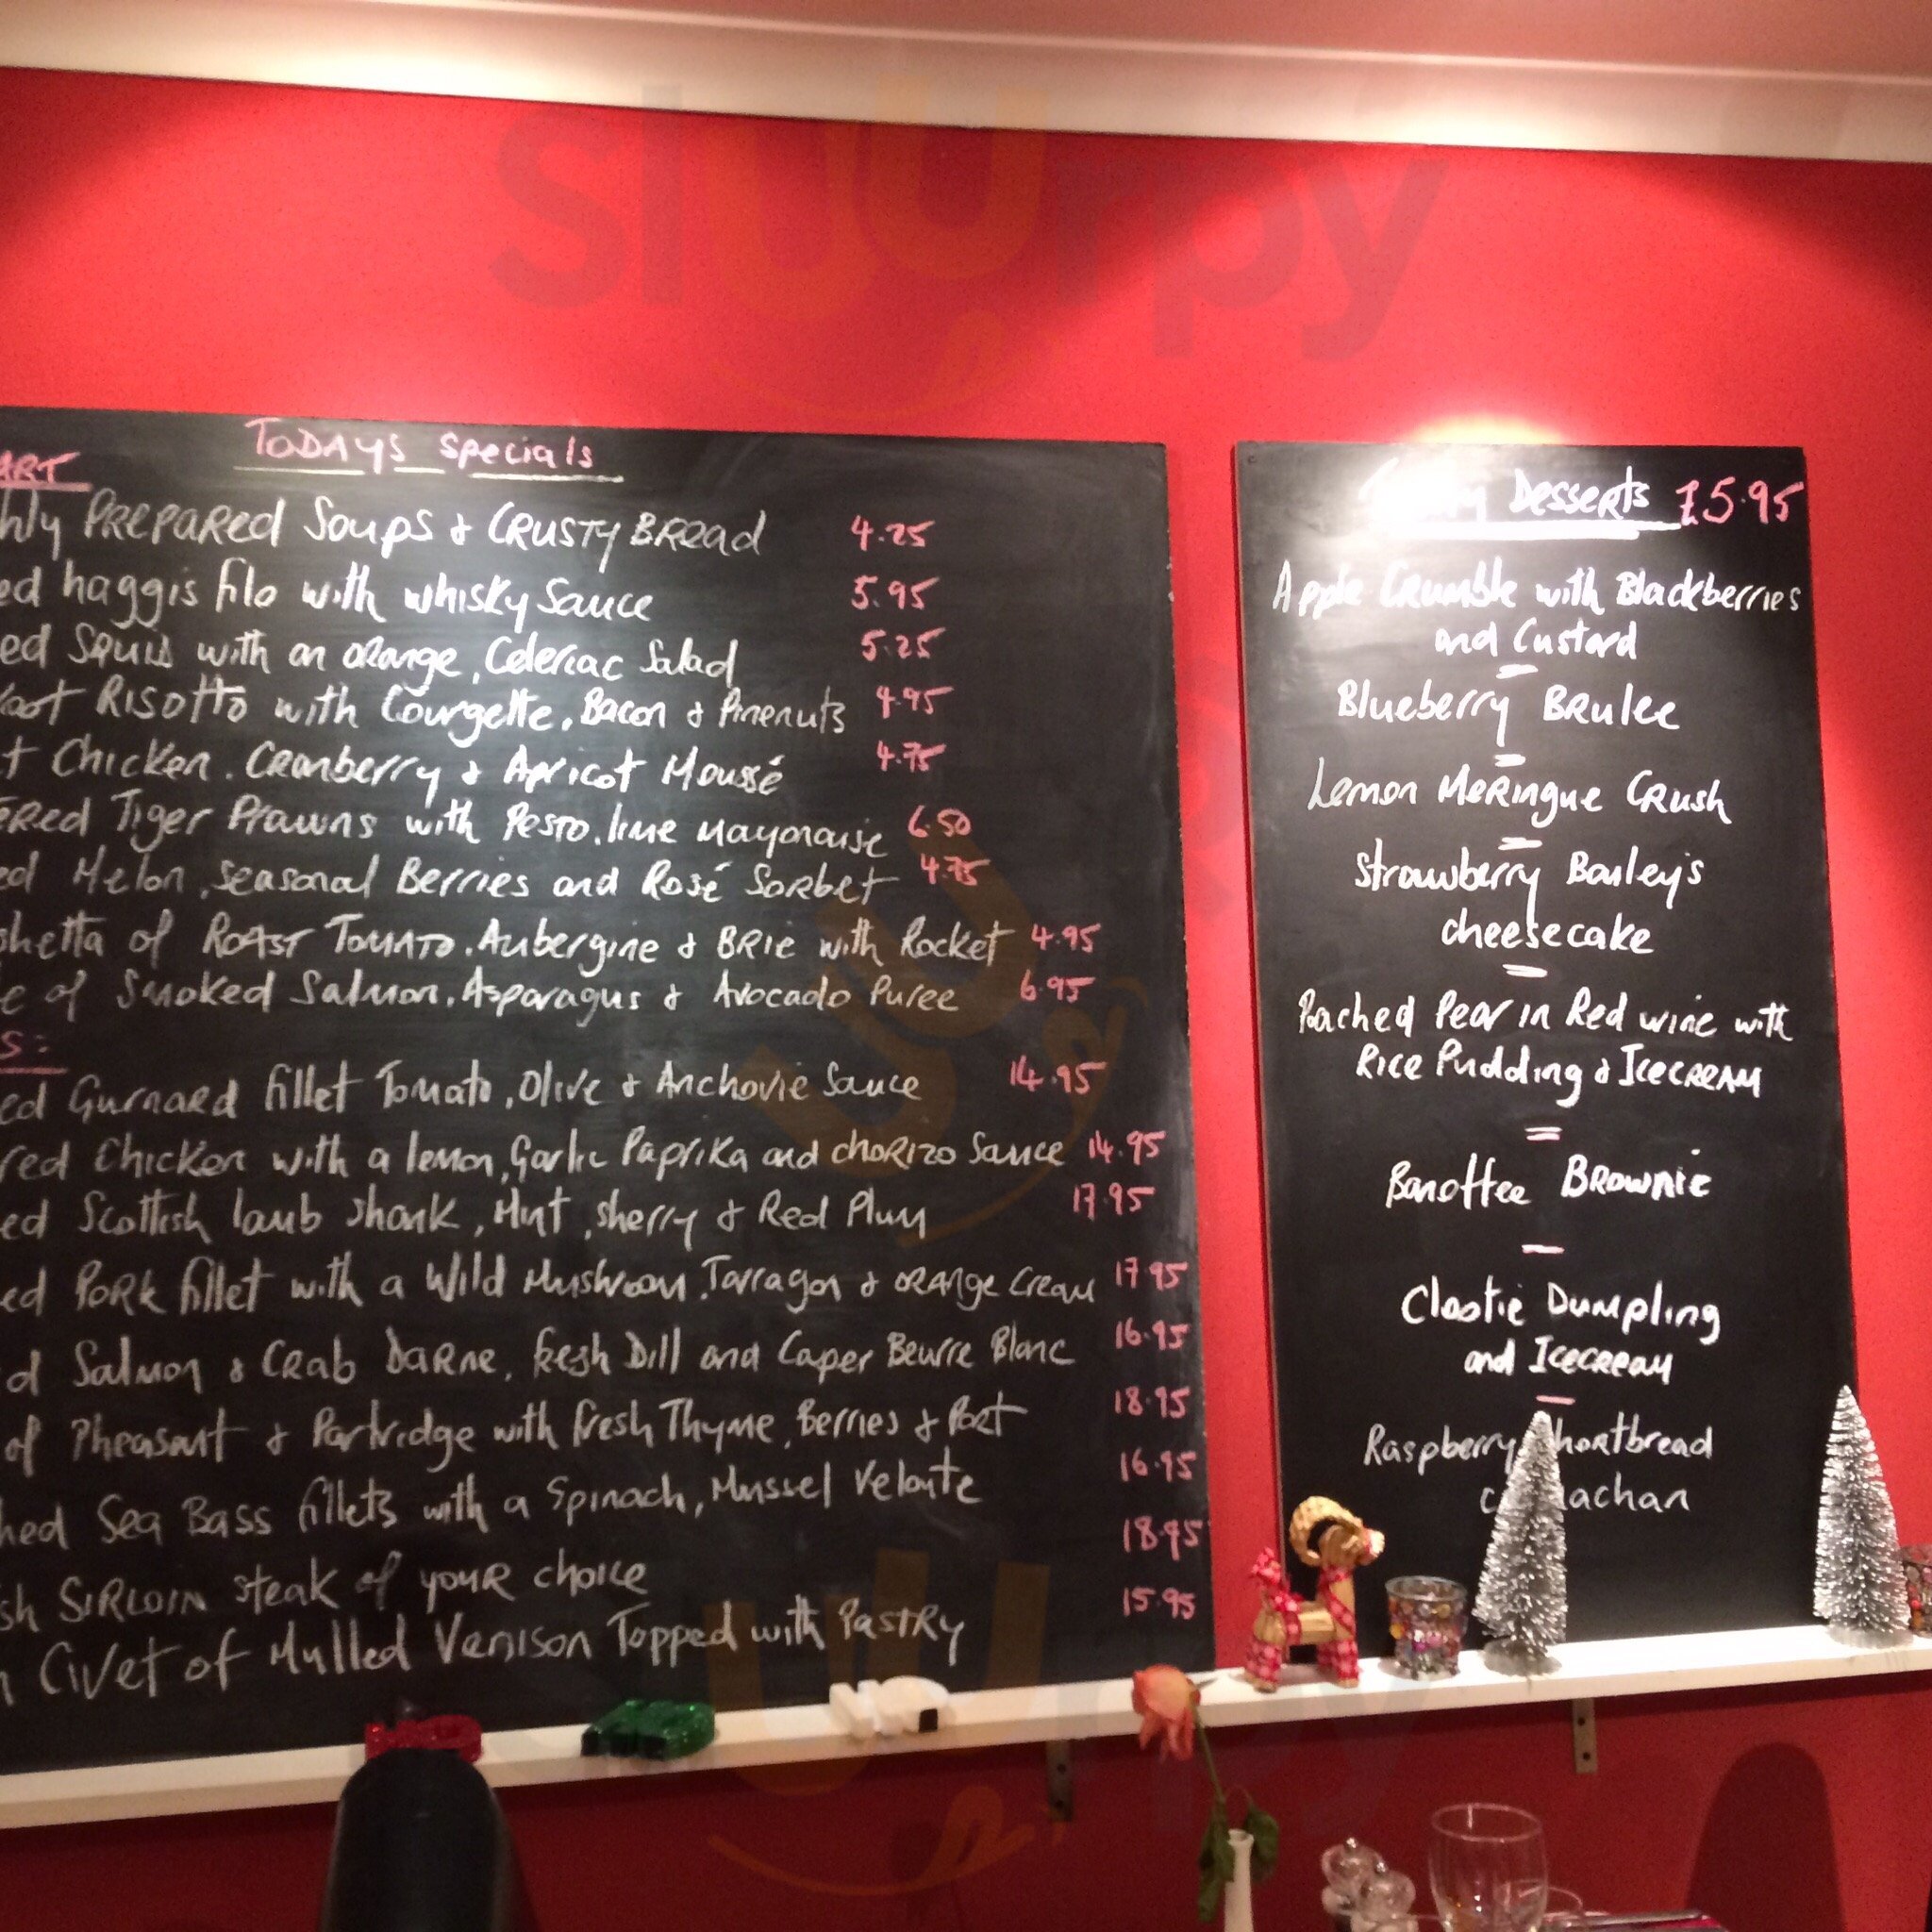 sluurpy
TODAYS specials
ART
hly PREPARED Soups & CRUSTY BREAD 4.25
ed haggis filo with whisky Sauce 5.95
ed Squid with an orange, Celeriac Salad 5.25
RISOTTO with Courgette, Bacon & Pinenuts 4.95
t Chicken, Cranberry & Apricot Moussé 4.75
ERED Tiger Prawns with Pesto, lime mayonaise 6.50
ed Melon, seasonal Berries and Rosé Sorbet 4.75
shetta of ROAST TOMATO, Aubergine & BRIE with Rocket 4.95
e of Smoked Salmon, Asparagus & Avocado Puree 6.95
S:
ed Gurnard fillet Tomato, Olive & Anchovie Sauce 14.95
red Chicken with a lemon, Garlic Paprika and chorizo Sauce 14.95
ed Scottish lamb shank, Mint, sherry & Red Plum 17.95
ed Pork fillet with a Wild Mushroom, Tarragon & ORANGE Cream 17.95
d Salmon & CRab Darne, fresh Dill and Caper Beurre Blanc 16.95
of Pheasant & Partridge with fresh Thyme, Berries & Port 18.95
hed Sea Bass fillets with a Spinach, Mussel Veloute 16.95
sh SIRLOIN steak of your choice 18.95
n Civet of Mulled Venison Topped with Pastry 15.95
Desserts £5.95
Apple Crumble with Blackberries
and Custard
Blueberry Brulee
Lemon Meringue Crush
Strawberry Bailey's
cheesecake
Poached Pear in Red wine with
Rice Pudding & ICECREAM
Banoffee Brownie
Clootie Dumpling
and Icecream
Raspberry Shortbread
c achan